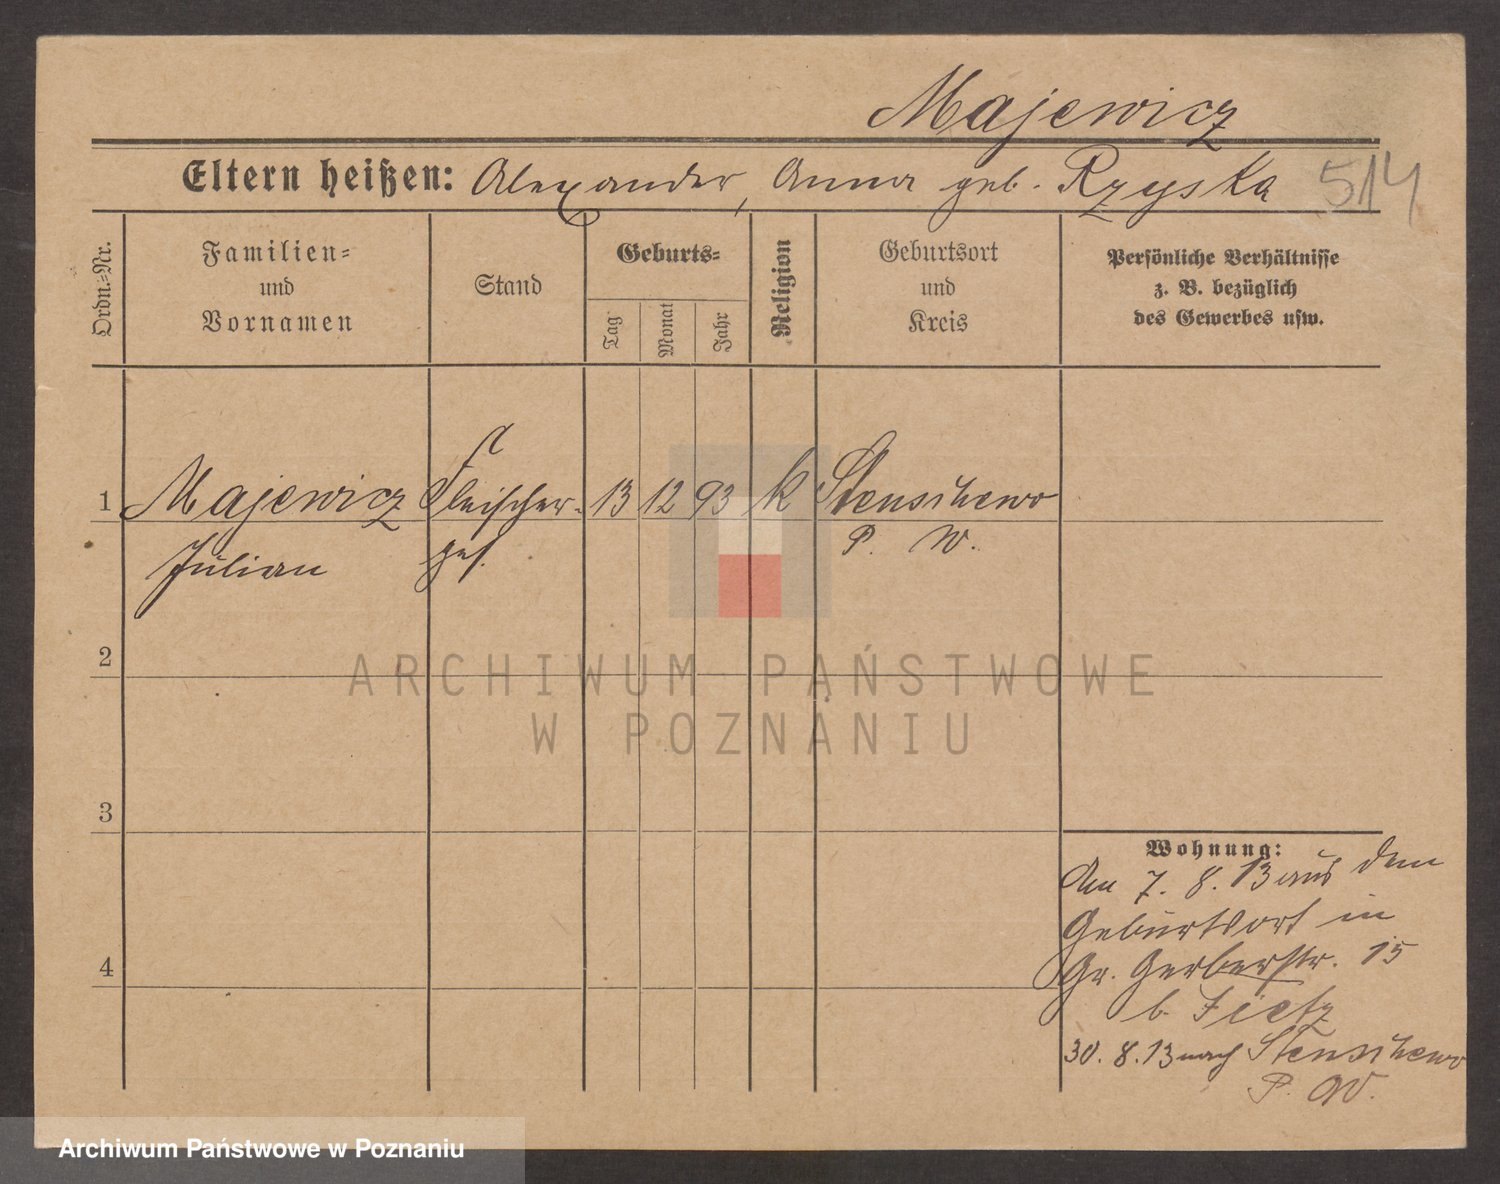 Majewicz
Eltern heißen: Alexander, Anna geb. Rzyska 514
Ordn.=Nr.
Familien=
und
Vornamen
Stand
Geburts=
Tag
Monat
Jahr
Religion
Geburtsort
und
Kreis
Persönliche Verhältnisse
z. B. bezüglich
des Gewerbes usw.
1 Majewicz Fleischer- 13 12 93 k Stenschewo
Julian ges. P. W.
2
ARCHIWUM PAŃSTWOWE
W POZNANIU
3
Wohnung:
Am 7. 8. 13 aus dem
Geburtsort in
4
Gr. Gerberstr. 15
b.
30. 8. 13 nach Stenschewo
P. W.
Archiwum Państwowe w Poznaniu